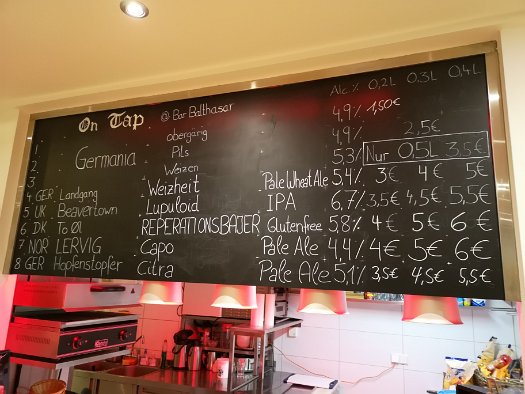 On Tap @ Bar Balthasar Alc.% 0,2L 0,3L 0,4L
1 obergärig 4,9% 1,50€
2 Germania Pils 4,9% 2,5€
3 Weizen 5,3% Nur 0,5L 3,5€
4 GER Landgang Weizheit Pale Wheat Ale 5,4% 3€ 4€ 5€
5 UK Beavertown Lupuloid IPA 6,7% 3,5€ 4,5€ 5,5€
6 DK To Øl REPERATIONSBAJER Glutenfree 5,8% 4€ 5€ 6€
7 NOR LERVIG Capo Pale Ale 4,4% 4€ 5€ 6€
8 GER Hopfenstopfer Citra Pale Ale 5,1% 3,5€ 4,5€ 5,5€